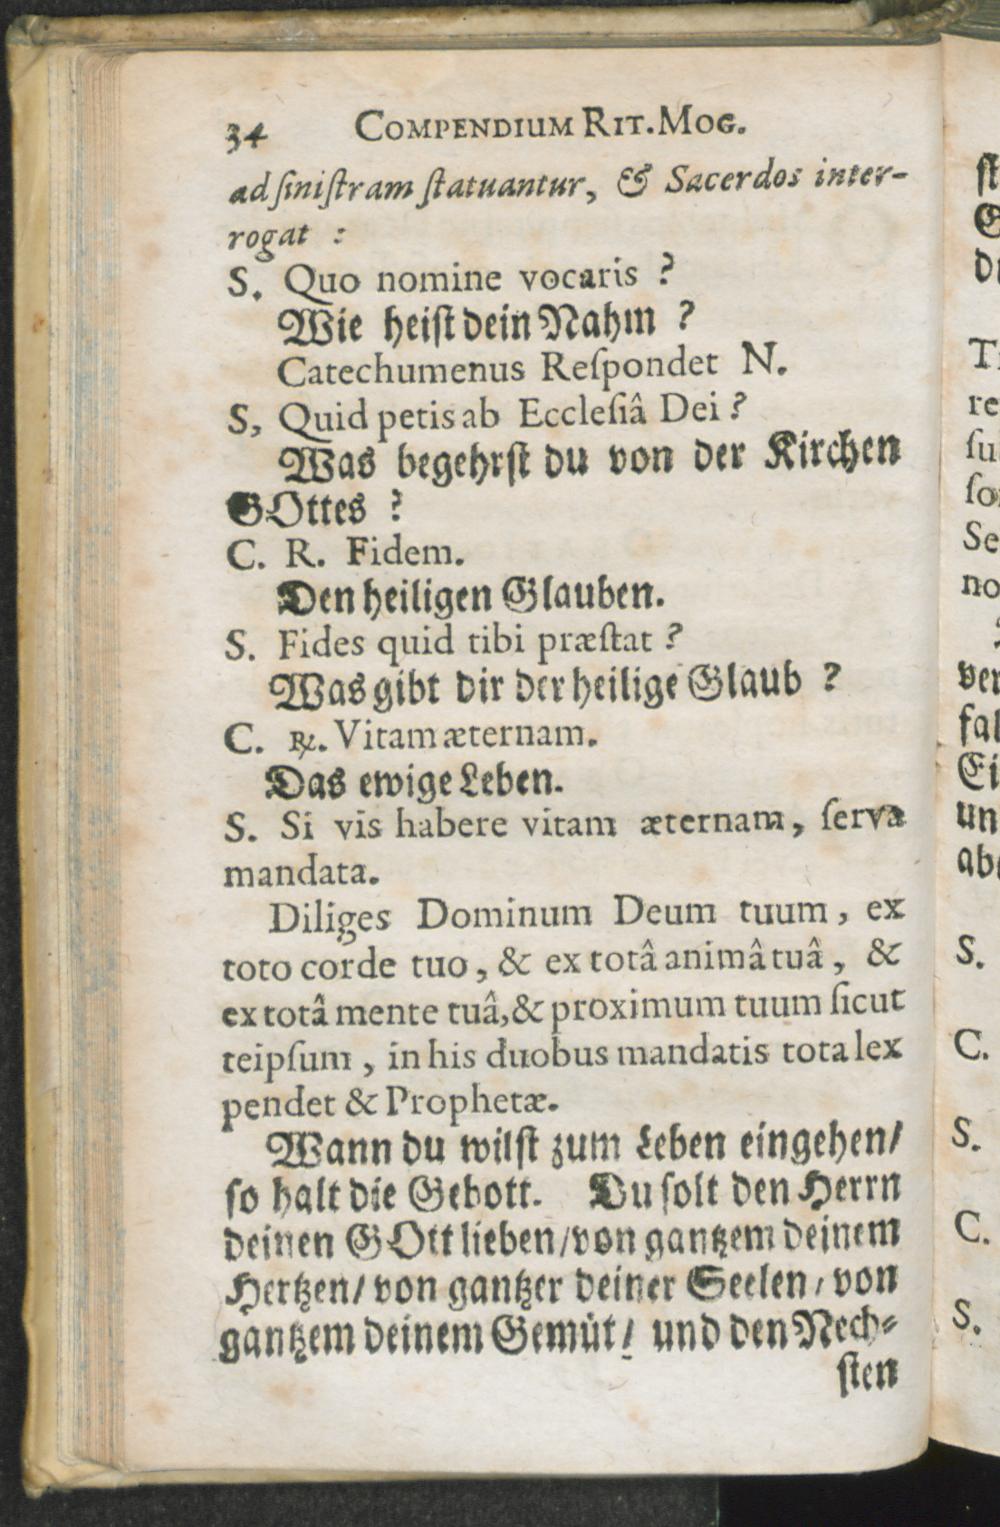 34 COMPENDIUM RIT. MOG.
ad siniſtram ſtatuantur, & Sacerdos inter-
rogat :
S. Quo nomine vocaris ?
Wie heiſt dein Nahm ?
Catechumenus Reſpondet N.
S, Quid petis ab Eccleſiâ Dei ?
Was begehrſt du von der Kirchen
GOttes ?
C. R. Fidem.
Den heiligen Glauben.
S. Fides quid tibi præſtat ?
Was gibt dir der heilige Glaub ?
C. ℞. Vitam æternam.
Das ewige Leben.
S. Si vis habere vitam æternam, ſerva
mandata.
Diliges Dominum Deum tuum, ex
toto corde tuo, & ex totâ animâ tuâ, &
ex totâ mente tuâ, & proximum tuum ſicut
teipſum, in his duobus mandatis tota lex
pendet & Prophetæ.
Wann du wilſt zum Leben eingehen/
ſo halt die Gebott. Du ſolt den Herrn
deinen GOtt lieben/ von gantzem deinem
Hertzen/ von gantzer deiner Seelen/ von
gantzem deinem Gemüt/ und den Nech-
ſten
S.
C.
S.
C.
S.